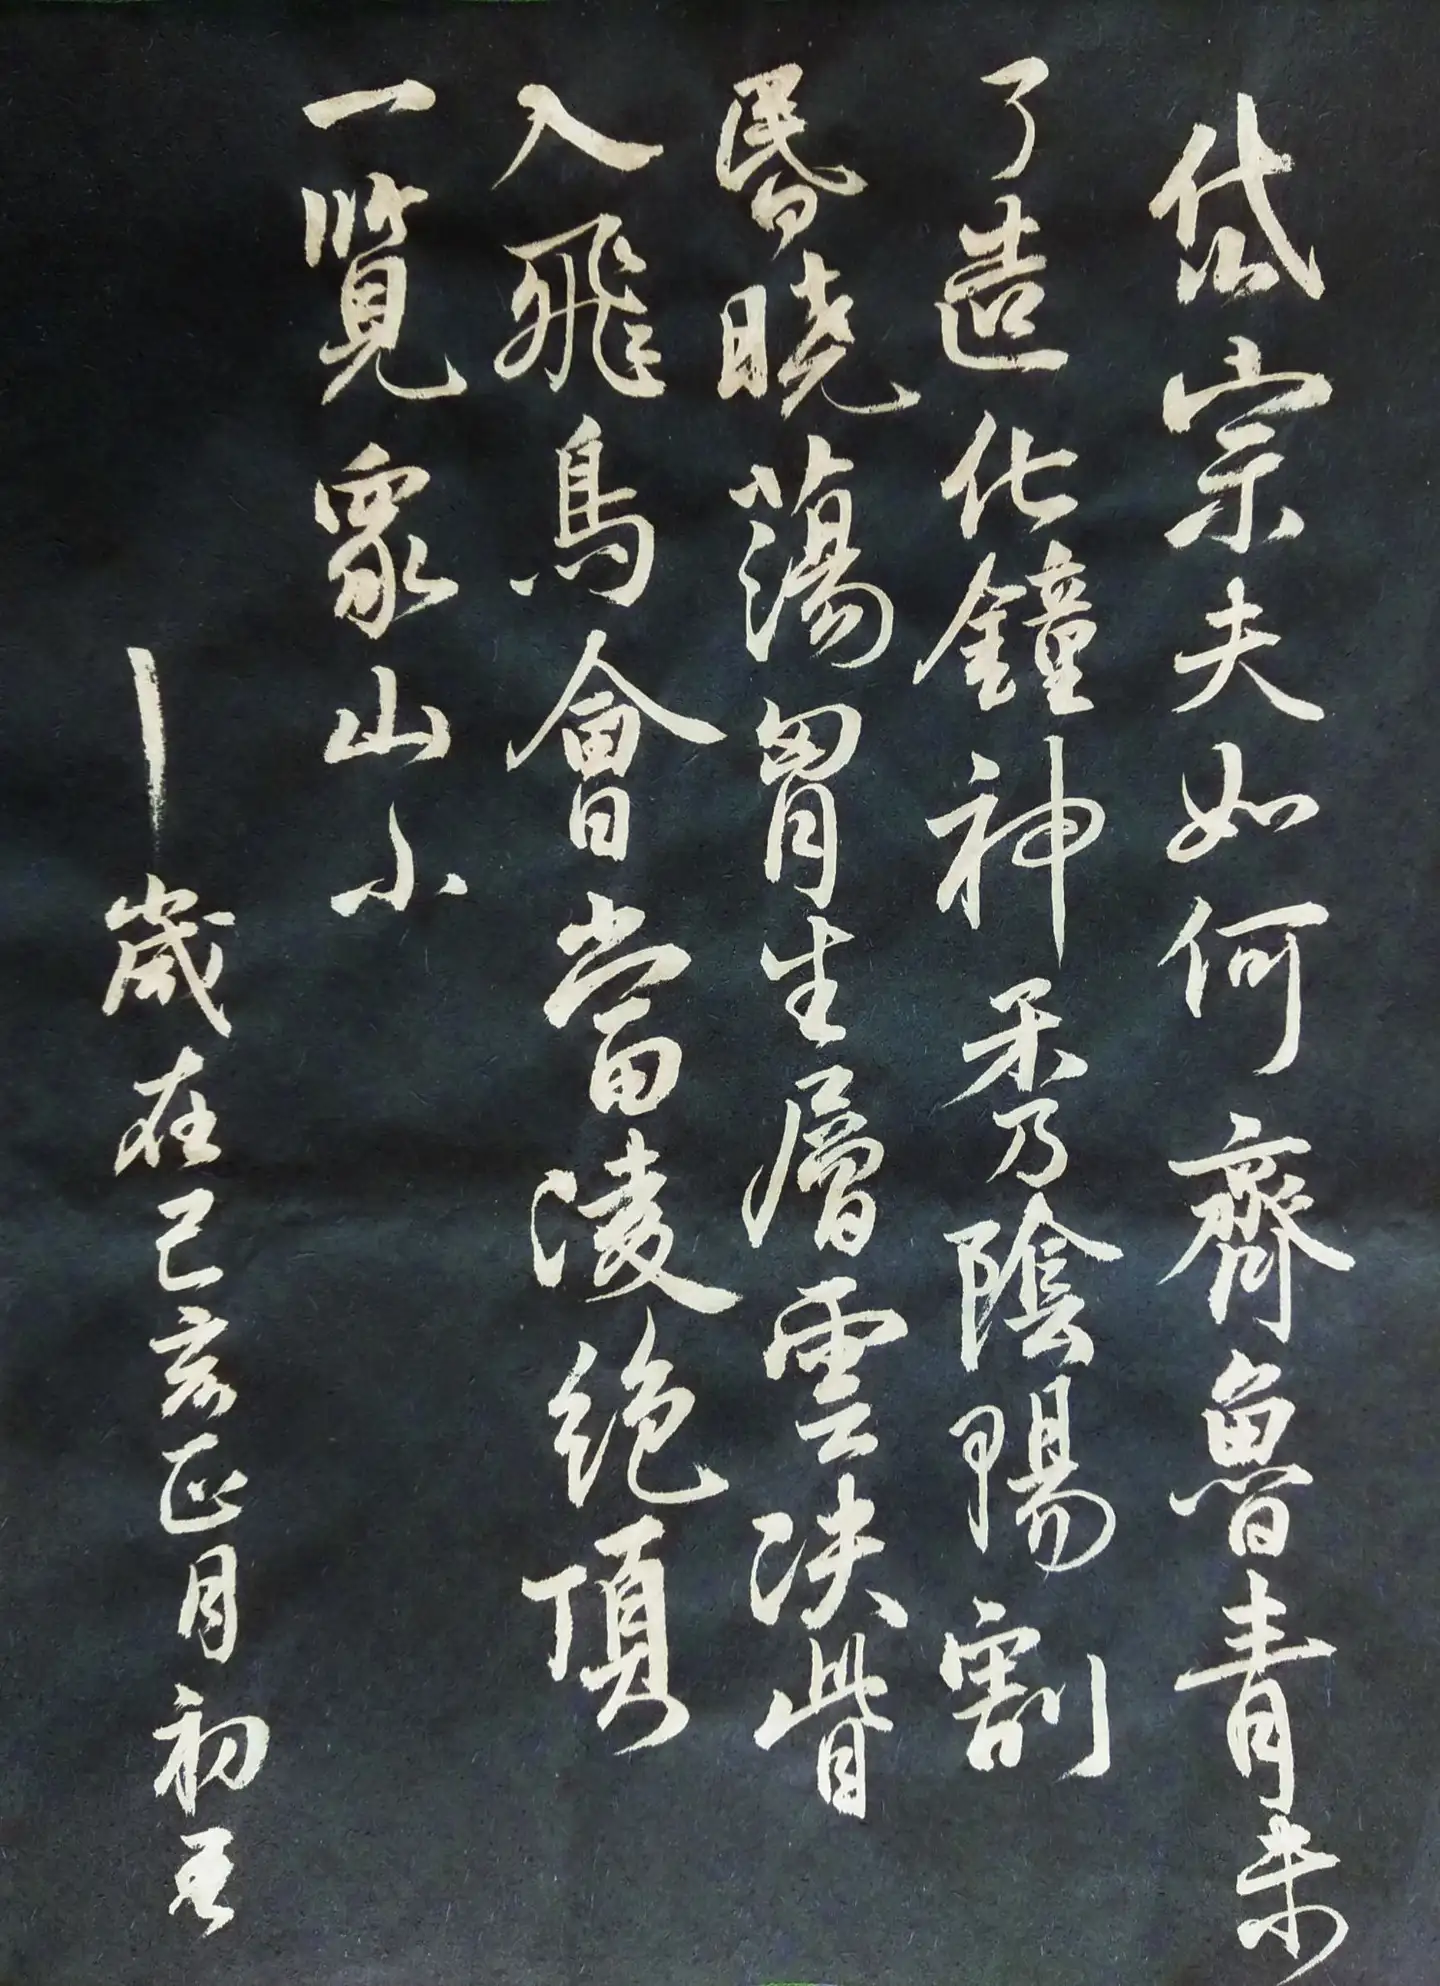 岱宗夫如何齊魯青未
了造化鐘神秀陰陽割
昬晓蕩胷生層雲決眥
入飛鳥會當淩絕頂
一覽眾山小
歲在己亥正月初五